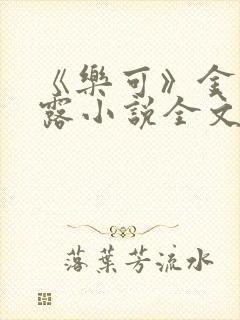 《樂可》金
露小說全文
落葉芳流水